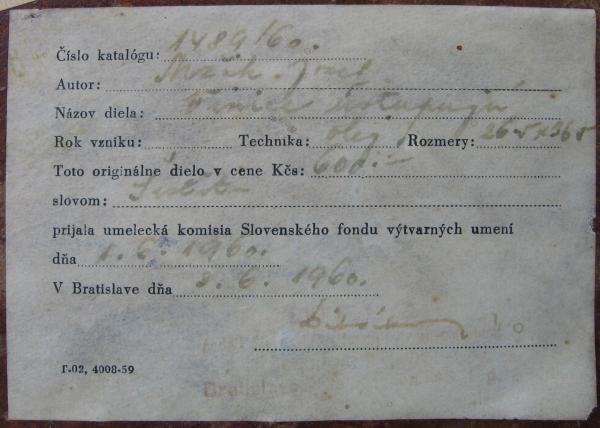 Číslo katalógu: 1489/60.
Autor: Jozef
Názov diela: ustupujú
Rok vzniku: Technika: olej Rozmery: 26·5 x 36·5
Toto originálne dielo v cene Kčs: 600.-
slovom: Šesto
prijala umelecká komisia Slovenského fondu výtvarných umení
dňa 1. 6. 1960.
V Bratislave dňa 3. 6. 1960.
Г-02, 4008-59
Bratislava